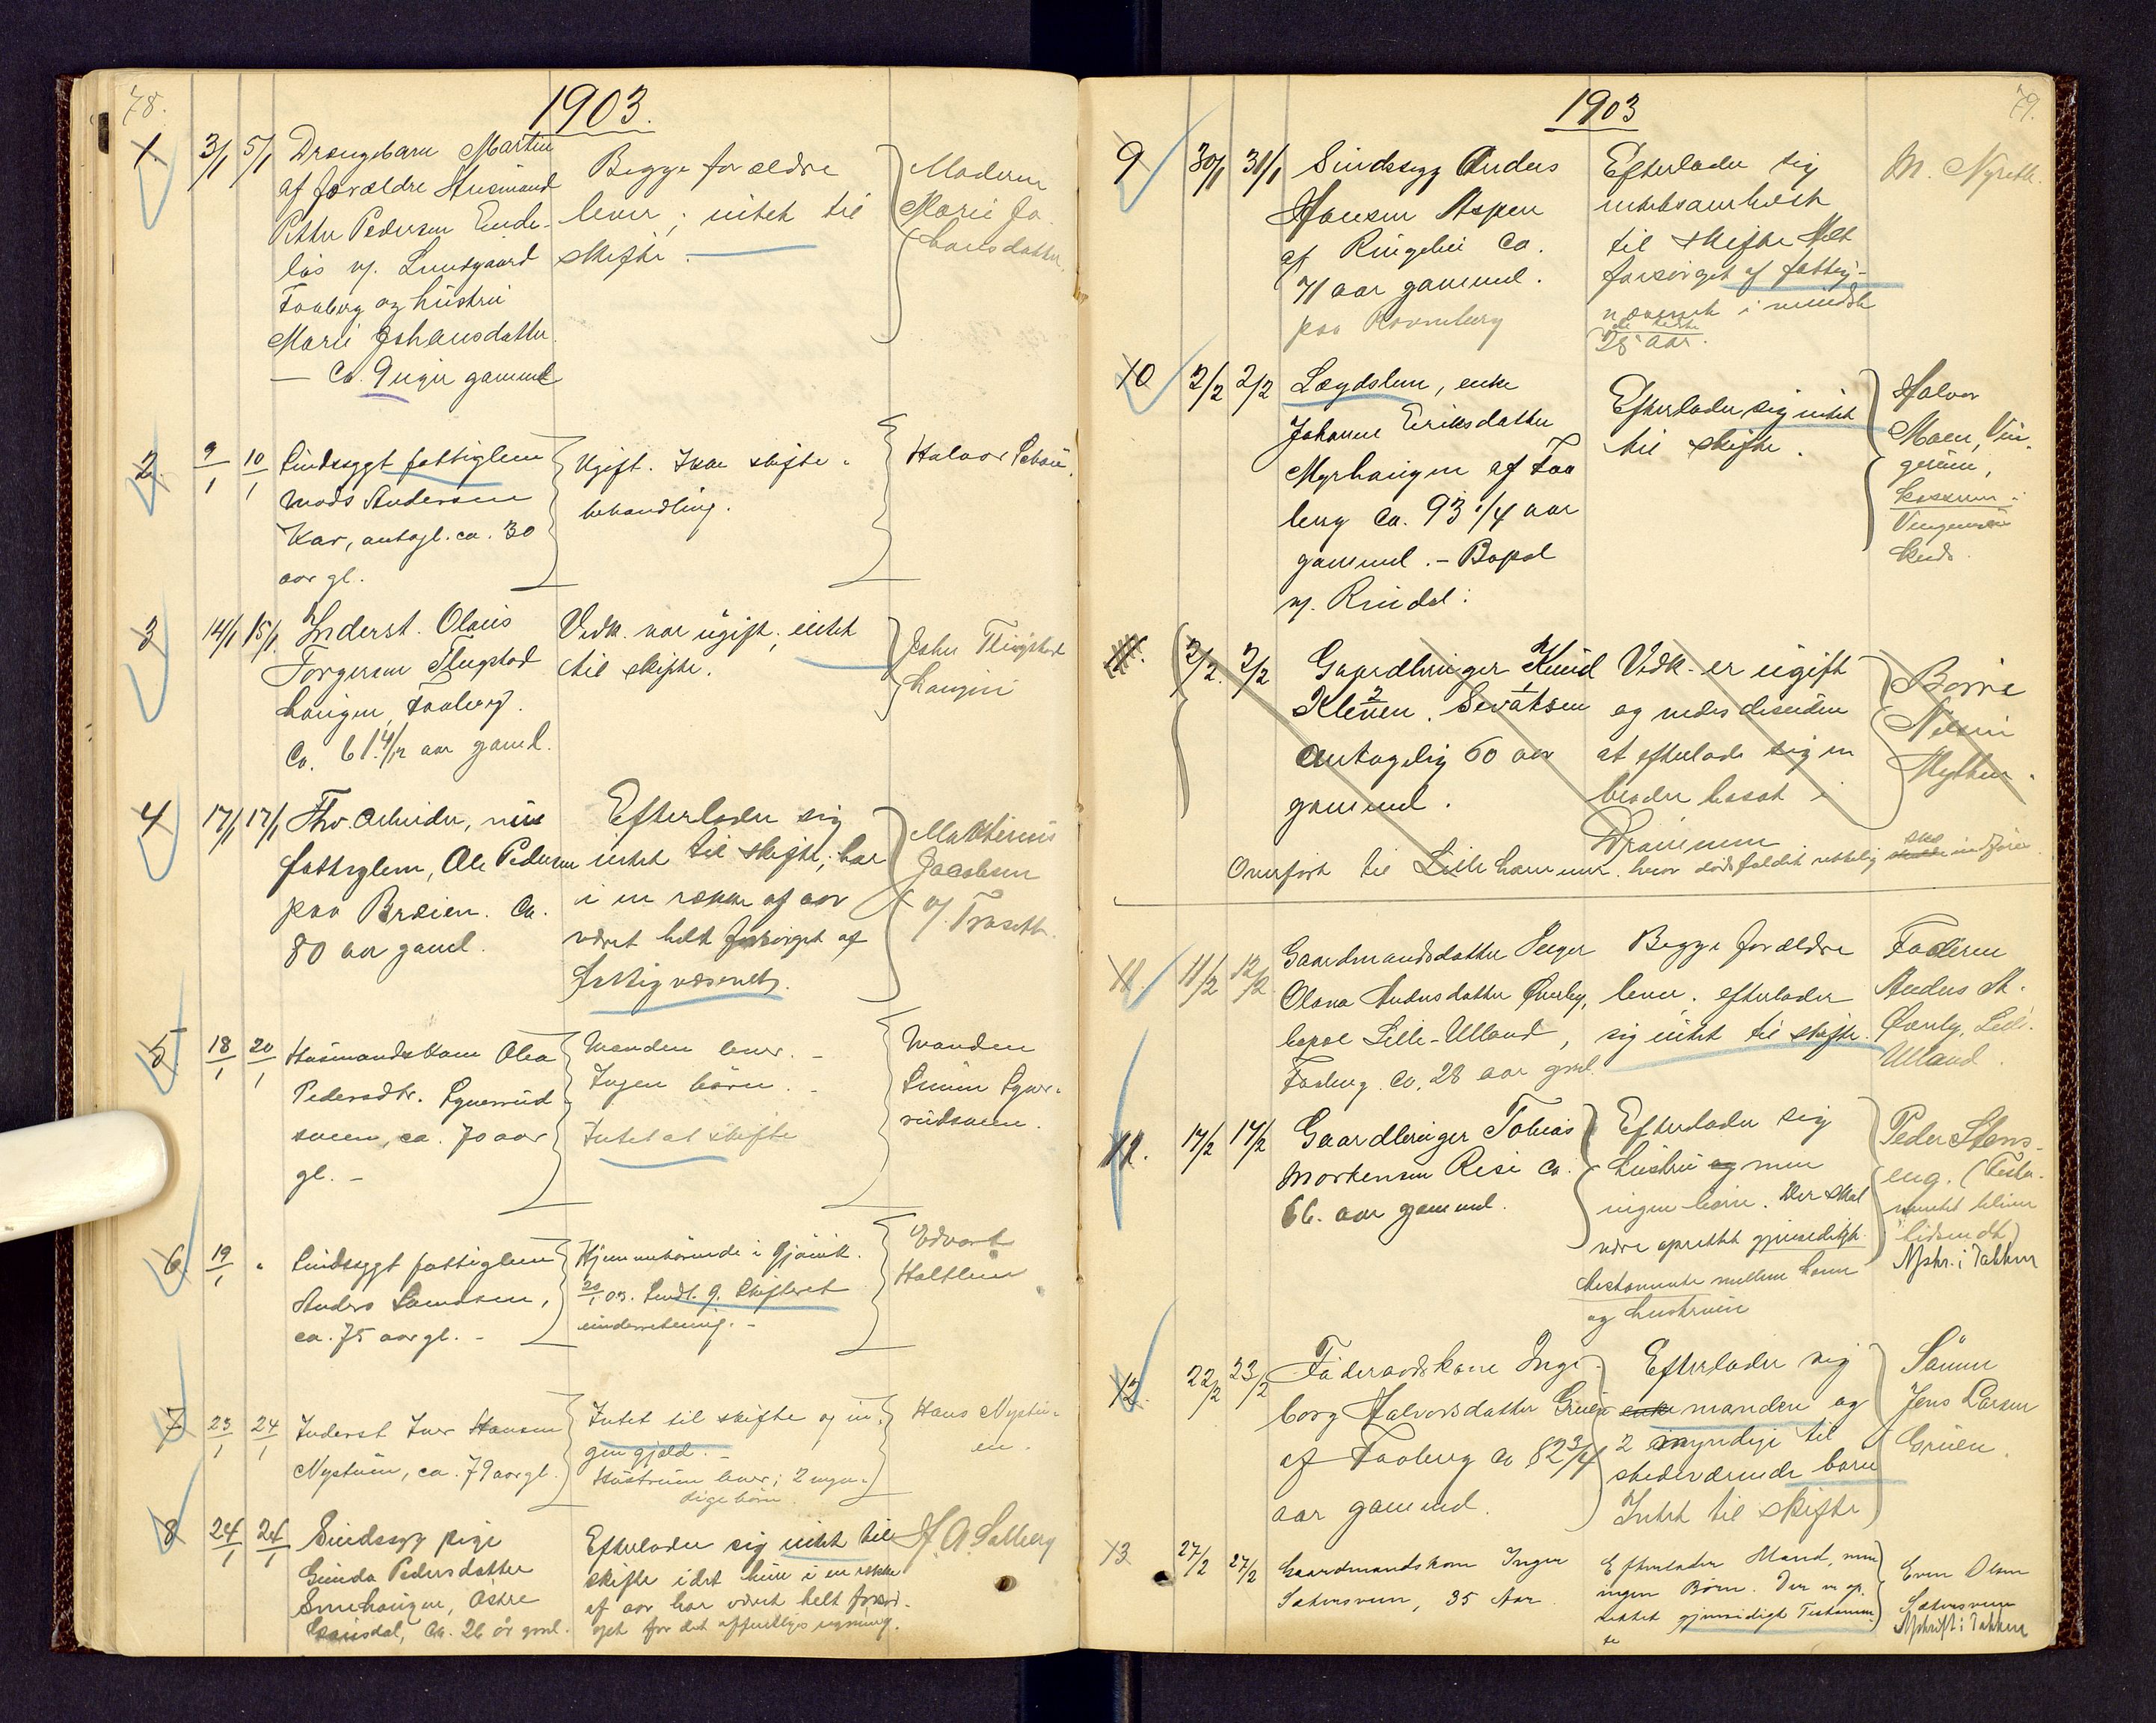 78.
1903.
1. 3/1 5/1 Drengebarn Martin
af forældre Husmand
Petter Pedersen Ende-
løs v/. Lundgaard
Faaberg og hustru
Marie Johansdatter.
— Ca. 9 uger gammel
Begge forældre
lever; intet til
skifte.
Moderen
Marie Jo-
hansdatter.
2. 9/1 10/1 Sindssygt fattiglem
Mads Andersen
antagl. ca. 30
aar gl.
Ugift. skifte-
behandling.
Halvor
3 14/1 15/1 Inderst. Olaus
Torgersen Flugstad
haugen, Faaberg.
Ca. 61 4/12 aar gaml.
Vedk. var ugift; intet
til skifte.
John Flugstad
haugen
4 17/1 17/1 Fhv. arbeider, nu
fattiglem, Ole Pedersen
paa Bræien. Ca.
80 aar gaml.
Efterlader sig
intet til skifte; har
i en række af aar
været helt forsørget af
fattigvæsenet.
Mathinus
Jacobsen
v/. Traseth.
5 18/1 20/1 Husmandskone Olea
Pedersdtr.
sveen, ca. 70 aar
gl. -
Manden lever. -
Ingen børn. -
Intet at skifte
Manden
Simen
rudsveen.
6 19/1 " Sindssygt fattiglem
Anders
ca. 75 aar gl. -
Hjemmehørende i Gjøvik.
20/1 03. Sendt G. Skifteret
underretning. -
Edvart
7 23/1 24/1 Inderst Iver Hansen
Nystuen, ca. 79 aar gl.
Intet til skifte og in-
gen gjæld. -
Hustruen lever; 2 myn-
dige børn.
Hans Nystu-
en.
8 24/1 24/1 Sindssyg pige
Gunda Pedersdatter
Smehaugen, Østre
Gausdal, ca. 26 år gml.
Efterlader sig intet til
skifte idet hun i en række
af aar har været helt forsør-
get for det offentliges regning.
79.
1903
9 30/1 31/1 Sindssyg Anders
Hansen Aspen
af Ringebu Ca.
71 aar gammel.
paa
Efterlader sig
intetsomhelst
til skifte. Helt
forsørget af fattig-
væsenet i mindst
de sidste
25 aar.
M. Nyseth.
10 2/2 2/2 Lægdslem, enke
Johanne Eriksdatter
Myrhaugen af Faa
berg ca. 93 1/4 aar
gammel. - Bopæl
v/. Rindal.
Efterlader sig intet
til skifte.
Halvor
Moen, Vin-
11. 2/2. 3/2 Gaardbruger Knud
Kleven. Sevatsen
antagelig 60 aar
gammel.
Vedk. er ugift
og vides desuden
at efterlade sig en
broder bosat i
Drammen
Overført til Lillehammer, hvor dødsfaldet rettelig skal indføres
11. 11/2 12/2 Gaardmandsdatter Inger
Olava Andersdatter Øverby,
bopæl Lille-Ulland,
Faaberg. Ca. 28 aar gml.
Begge forældre
lever. efterlader
sig intet til skifte.
Faderen
Anders A.
Øverby, Lille-
Ulland.
11. 17/2 17/2 Gaardbruger Tobias
Mortensen Risè Ca.
66. aar gammel.
Efterlader sig
hustru og men
ingen børn. Der skal
være oprettet gjensidigt
testamente mellem ham
og hustruen
Peder Stens-
eng. (Testa-
mentet bliver
Afskr. i Pakken
12. 22/2 23/2 Føderaadskone Inge-
borg Halvorsdatter Gruen
af Faaberg ca 82 3/4
aar gammel.
Efterlader sig
enke manden og
2 myndige til
stedeværende børn
Intet til skifte
Sønnen
Jens Larsen
Gruen.
13 27/2 27/2 Gaardmandskone Inger
Sætersveen, 35 Aar.
Efterlader Mand, men
ingen Børn. Der er op-
rettet gjensidigt Testamen-
te
Even Olsen
Sætersveen
Afskrift i Pakken